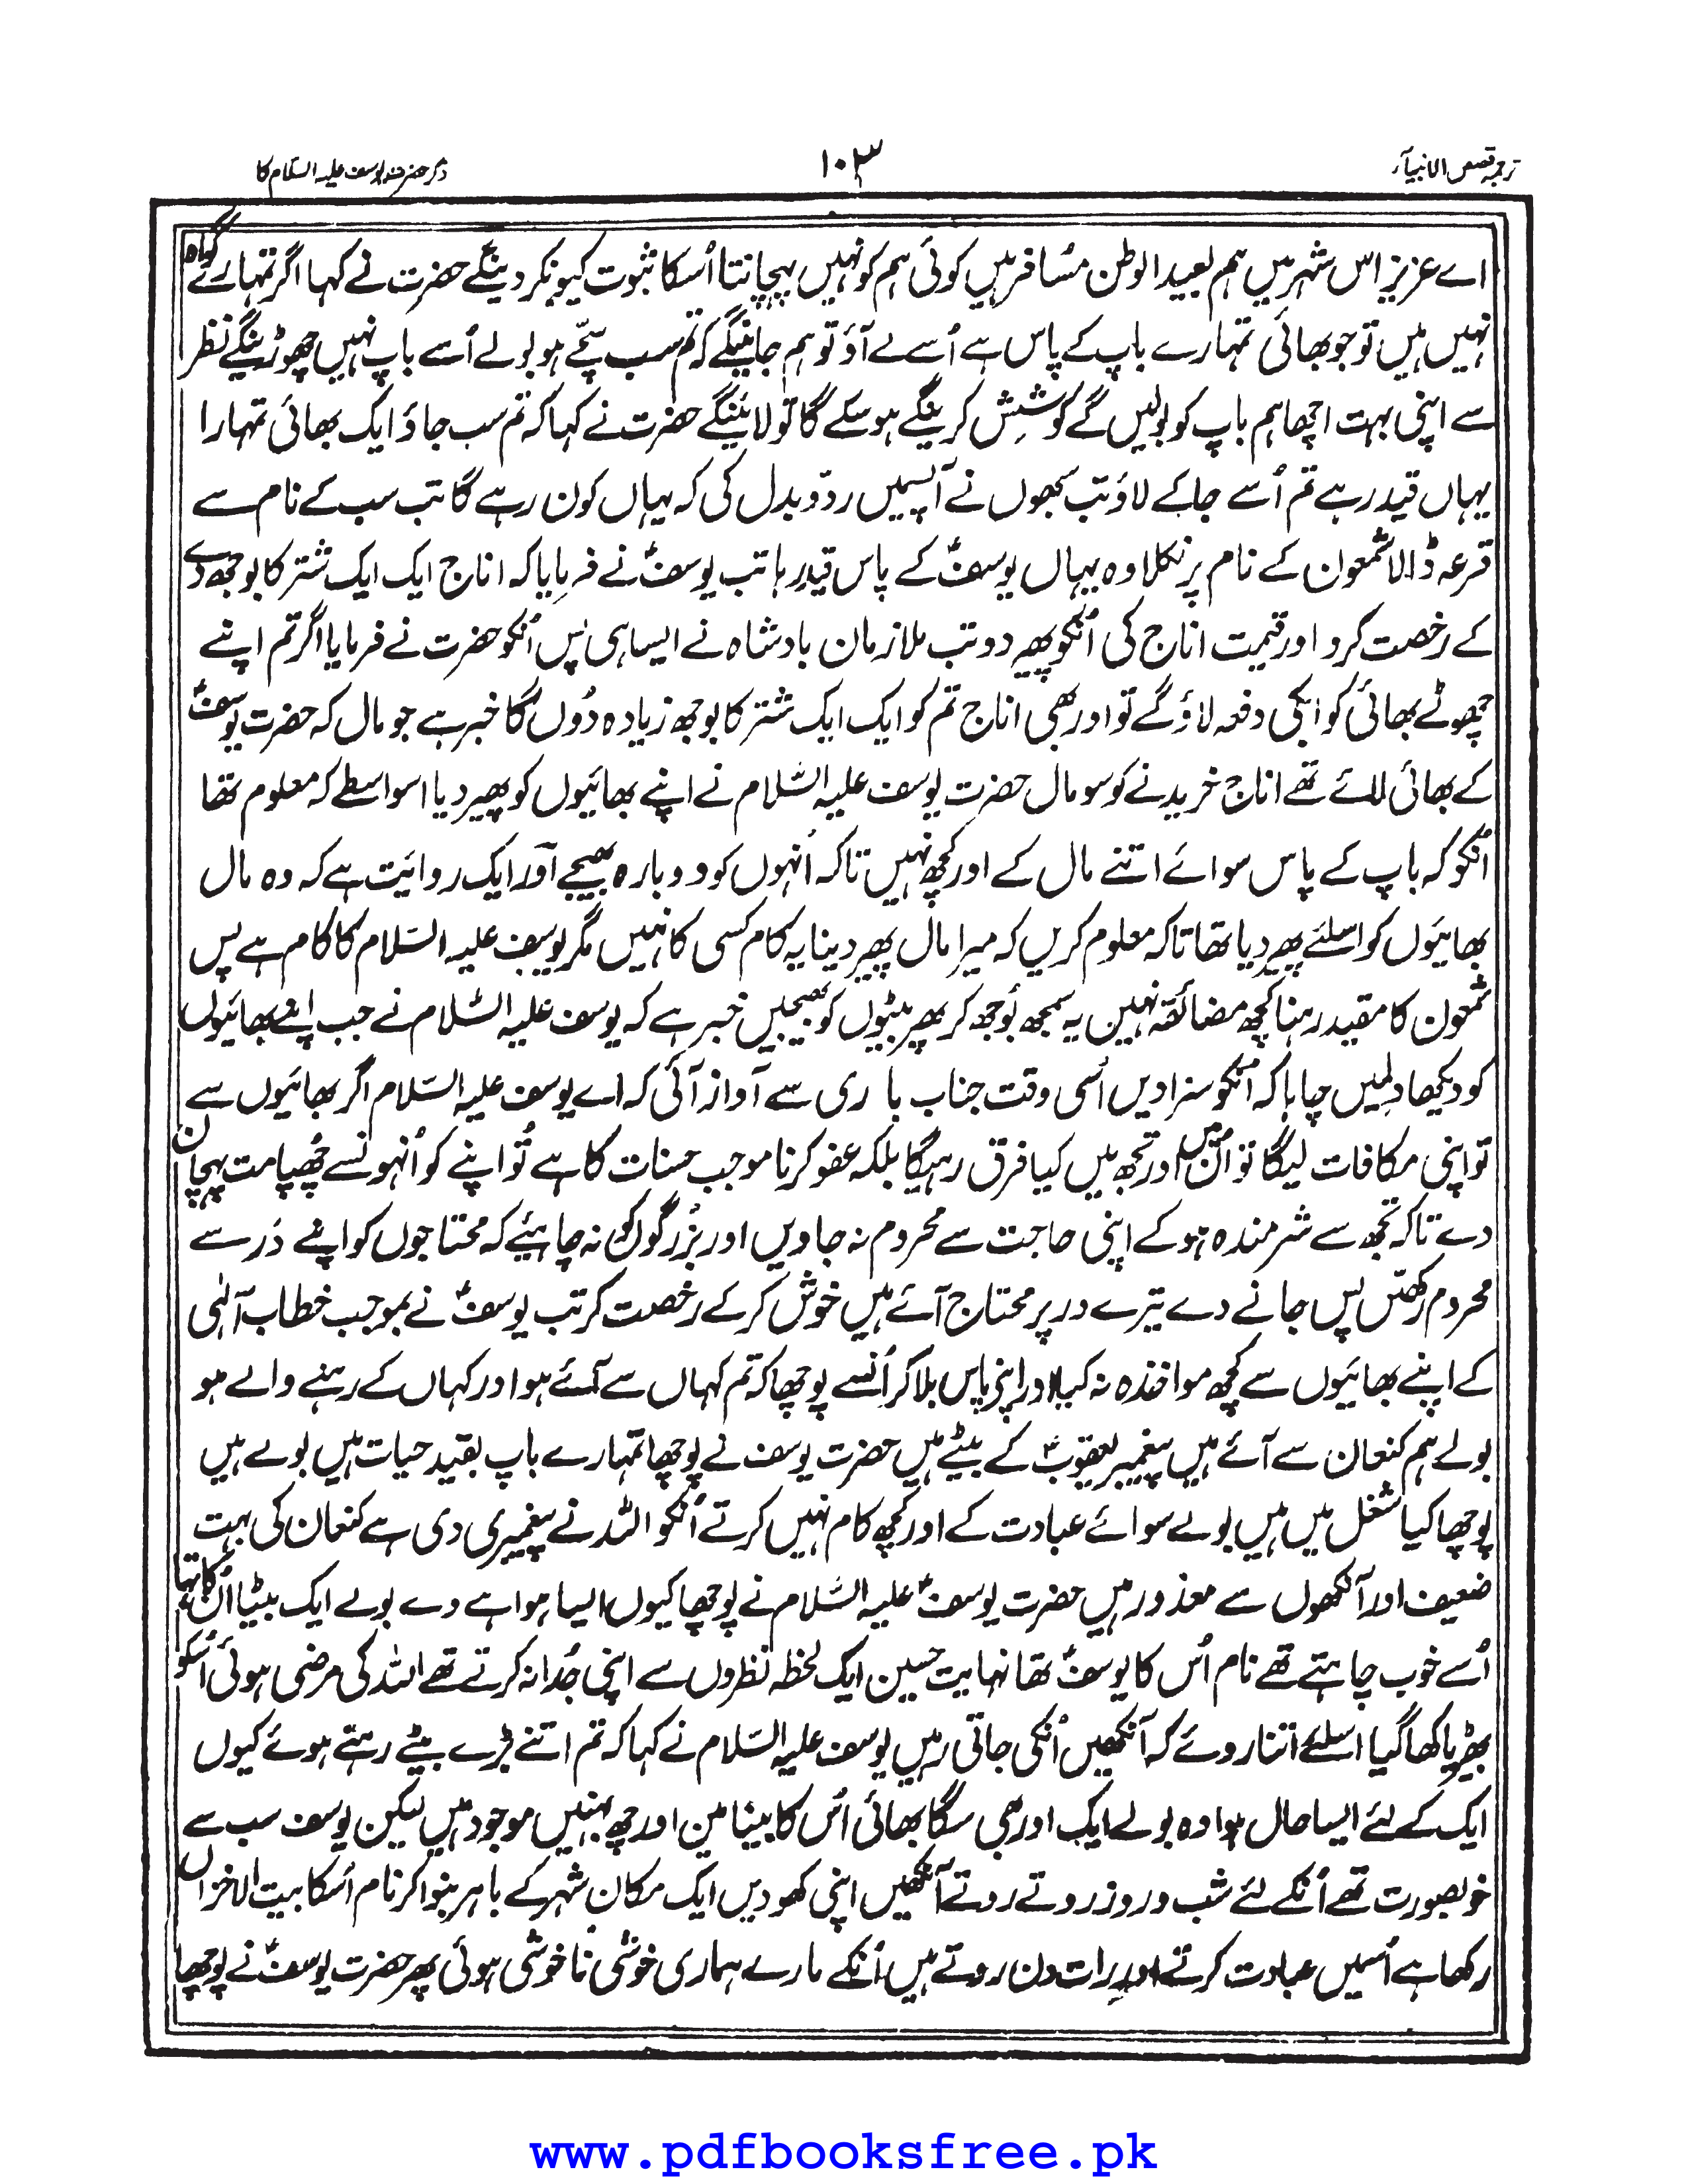 ترجمہ قصص الانبیآء
۱۰۳
ذکر حضرت یوسف علیہ السلام کا
اے عزیز اس شہر میں ہم بعید الوطن مسافر ہیں کوئی ہم کو نہیں پہچانتا اُسکا ثبوت کیونکر دینگے حضرت نے کہا اگر تمہارے گواہ
نہیں ہیں تو جو بھائی تمہارے باپ کے پاس ہے اُسے لے آؤ تو ہم جانینگے کہ تم سب سچّے ہو بولے اُسے باپ نہیں چھوڑینگے نظر
سے اپنی بہت اچھا ہم باپ کو بولیں گے کوشِش کرینگے ہو سکے گا تو لائینگے حضرت نے کہا کہ تم سب جاؤ ایک بھائی تمہارا
یہاں قید رہے تم اُسے جا کے لاؤ تب سبھوں نے آپسمیں ردّ و بدل کی کہ یہاں کون رہے گا تب سب کے نام سے
قرعہ ڈالا شمعون کے نام پر نکلا وہ یہاں یوسفؑ کے پاس قید رہا تب یوسفؑ نے فرمایا کہ اناج ایک ایک شتر کا بوجھ دے
کے رخصت کرو اور قیمت اناج کی اُنکو پھیر دو تب ملازمان بادشاہ نے ایسا ہی پس اُنکو حضرت نے فرمایا اگر تم اپنے
چھوٹے بھائی کو ابکی دفعہ لاؤ گے تو اور بھی اناج تم کو ایک ایک شتر کا بوجھ زیادہ دُوں گا خبر ہے جو مال کہ حضرت یوسفؑ
کے بھائی لائے تھے اناج خریدنے کو سو مال حضرت یوسف علیہ السّلام نے اپنے بھائیوں کو پھیر دیا اسواسطے کہ معلوم تھا
اُنکو کہ باپ کے پاس سوائے اتنے مال کے اور کچھ نہیں تا کہ اُنہوں کو دوبارہ بھیجے اور ایک روائیت ہے کہ وہ مال
بھائیوں کو اسلئے پھیر دیا تھا تا کہ معلوم کریں کہ میرا مال پھیر دینا یہ کام کسی کا نہیں مگر یوسف علیہ السّلام کا کام ہے پس
شمعون کا مقید رہنا کچھ مضائقہ نہیں یہ سمجھ بُوجھ کر پھر بیٹوں کو بھیجیں خبر ہے کہ یوسف علیہ السّلام نے جب اپنے بھائیوں
کو دیکھا دلمیں چاہا کہ اُنکو سزا دیں اُسی وقت جناب باری سے آواز آئی کہ اے یوسف علیہ السّلام اگر بھائیوں سے
تو اپنی مکافات لیگا تو اُن میں اور تجھ میں کیا فرق رہیگا بلکہ عفو کرنا موجب حسنات کا ہے تُو اپنے کو اُنہونسے چُھپا مت پہچان
دے تا کہ تجھ سے شرمندہ ہو کے اپنی حاجت سے محروم نہ جاویں اور بزُرگوں کو نہ چاہیئے کہ محتاجوں کو اپنے دَر سے
محروم رکھیں پس جانے دے تیرے در پر محتاج آئے ہیں خوش کر کے رخصت کر تب یوسفؑ نے بموجب خطاب آلہٰی
کے اپنے بھائیوں سے کچھ مواخذہ نہ کیا اور اپنے پاس بلا کر اُنسے پوچھا کہ تم کہاں سے آئے ہو اور کہاں کے رہنے والے ہو
بولے ہم کنعان سے آئے ہیں پیغمبر یعقوبؑ کے بیٹے ہیں حضرت یوسف نے پوچھا تمہارے باپ بقید حیات ہیں بولے ہیں
پوچھا کیا شغل میں ہیں بولے سوائے عبادت کے اور کچھ کام نہیں کرتے اُنکو اللہ نے پیغمبری دی ہے کنعان کی بہت
ضعیف اور آنکھوں سے معذور ہیں حضرت یوسفؑ علیہ السّلام نے پوچھا کیوں ایسا ہوا ہے دے بولے ایک بیٹا اُن کا تھا
اُسے خوب چاہتے تھے نام اُس کا یوسفؑ تھا نہایت حسین ایک لحظہ نظروں سے اپنی جُدا نہ کرتے تھے اللہ کی مرضی ہوئی اُسکو
بھیڑیا کھا گیا اسلئے اتنا روئے کہ آنکھیں اُنکی جاتی رہیں یوسف علیہ السّلام نے کہا کہ تم اتنے بڑے بیٹے رہتے ہوئے کیوں
ایک کے لئے ایسا حال ہوا وہ بولے ایک اور بھی سگا بھائی اُس کا بینامین اور چھ بہنیں موجود ہیں لیکن یوسف سب سے
خوبصورت تھے اُنکے لئے شب و روز روتے روتے آنکھیں اپنی کھو دیں ایک مکان شہر کے باہر بنوا کر نام اُسکا بیت الاخزان
رکھا ہے اُسمیں عبادت کرتے اور رات دن روتے ہیں اُنکے مارے ہماری خوشی نا خوشی ہوئی پھر حضرت یوسفؑ نے پوچھا
www.pdfbooksfree.pk